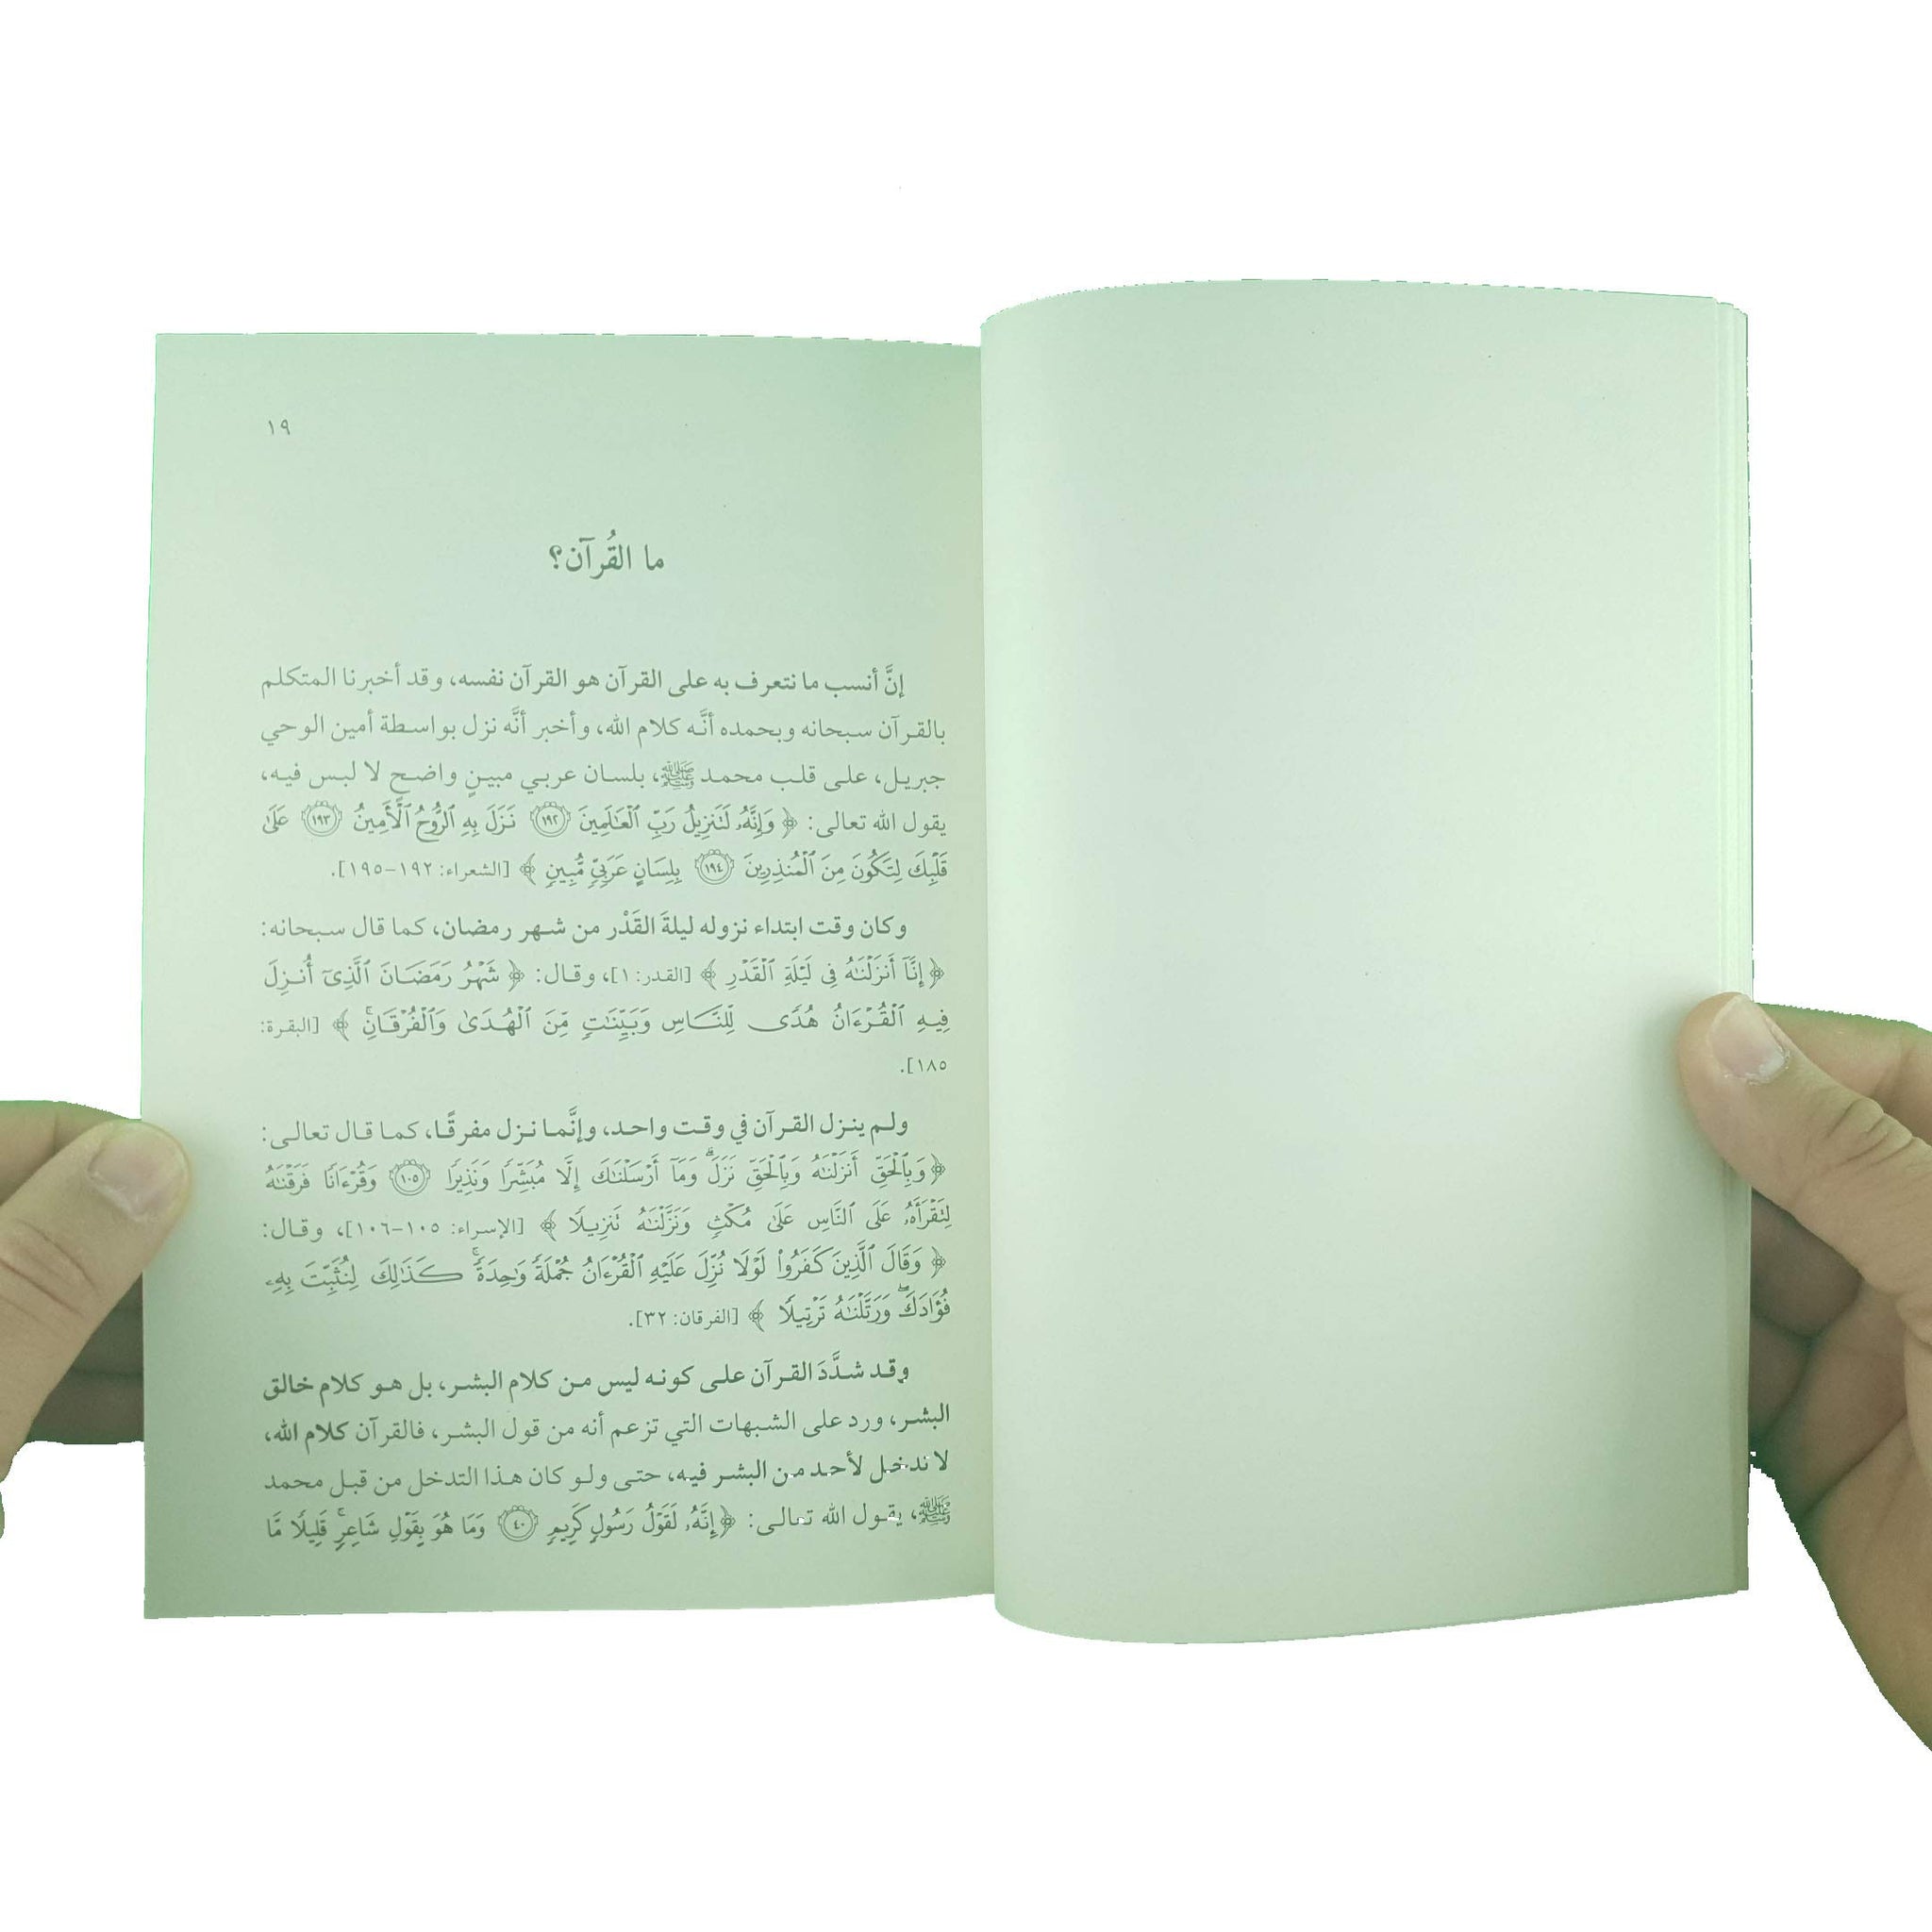 ١٩
ما القُرآن؟
إنَّ أنسب ما نتعرف به على القرآن هو القرآن نفسه، وقد أخبرنا المتكلم
بالقرآن سبحانه وبحمده أنَّه كلام الله، وأخبر أنَّه نزل بواسطة أمين الوحي
جبريل، على قلب محمد ﷺ، بلسان عربي مبينٍ واضحٍ لا لبس فيه،
يقول الله تعالى: ﴿وَإِنَّهُۥ لَتَنزِيلُ رَبِّ ٱلۡعَٰلَمِينَ ١٩٢ نَزَلَ بِهِ ٱلرُّوحُ ٱلۡأَمِينُ ١٩٣ عَلَىٰ
قَلۡبِكَ لِتَكُونَ مِنَ ٱلۡمُنذِرِينَ ١٩٤ بِلِسَانٍ عَرَبِيّٖ مُّبِينٖ﴾ [الشعراء: ١٩٢-١٩٥].
وكان وقت ابتداء نزوله ليلةَ القَدْر من شهر رمضان، كما قال سبحانه:
﴿إِنَّآ أَنزَلۡنَٰهُ فِي لَيۡلَةِ ٱلۡقَدۡرِ﴾ [القدر: ١]، وقال: ﴿شَهۡرُ رَمَضَانَ ٱلَّذِيٓ أُنزِلَ
فِيهِ ٱلۡقُرۡءَانُ هُدٗى لِّلنَّاسِ وَبَيِّنَٰتٖ مِّنَ ٱلۡهُدَىٰ وَٱلۡفُرۡقَانِۚ﴾ [البقرة:
١٨٥].
ولم ينزل القرآن في وقت واحد، وإنَّما نزل مفرقًا، كما قال تعالى:
﴿وَبِٱلۡحَقِّ أَنزَلۡنَٰهُ وَبِٱلۡحَقِّ نَزَلَۗ وَمَآ أَرۡسَلۡنَٰكَ إِلَّا مُبَشِّرٗا وَنَذِيرٗا ١٠٥ وَقُرۡءَانٗا فَرَقۡنَٰهُ
لِتَقۡرَأَهُۥ عَلَى ٱلنَّاسِ عَلَىٰ مُكۡثٖ وَنَزَّلۡنَٰهُ تَنزِيلٗا﴾ [الإسراء: ١٠٥-١٠٦]، وقال:
﴿وَقَالَ ٱلَّذِينَ كَفَرُواْ لَوۡلَا نُزِّلَ عَلَيۡهِ ٱلۡقُرۡءَانُ جُمۡلَةٗ وَٰحِدَةٗۚ كَذَٰلِكَ لِنُثَبِّتَ بِهِۦ
فُؤَادَكَۖ وَرَتَّلۡنَٰهُ تَرۡتِيلٗا﴾ [الفرقان: ٣٢].
وقد شدَّدَ القرآن على كونه ليس من كلام البشر، بل هو كلام خالق
البشر، ورد على الشبهات التي تزعم أنه من قول البشر، فالقرآن كلام الله،
لا تدخل لأحد من البشر فيه، حتى ولو كان هذا التدخل من قبل محمد
ﷺ، يقول الله تعالى: ﴿إِنَّهُۥ لَقَوۡلُ رَسُولٖ كَرِيمٖ ٤٠ وَمَا هُوَ بِقَوۡلِ شَاعِرٖۚ قَلِيلٗا مَّا